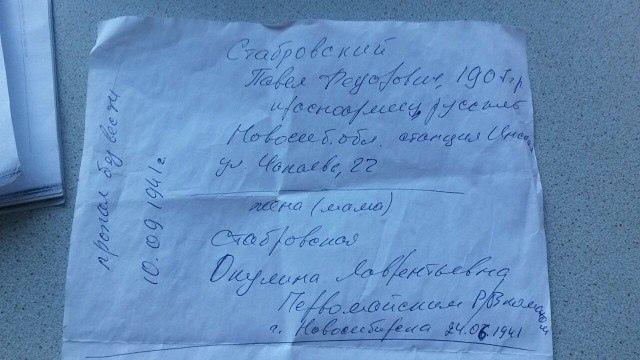 Стабровский
Павел Федорович, 190 г.р.
красноармеец, русский
Новосиб. обл. станция Инская
ул Чапаева, 22
жена (мама)
Стабровская
Окулина Лаврентьевна
Первомайским РВ
г. Новосибирска 24.06.1941
пропал без вести
10.09.1941 г.